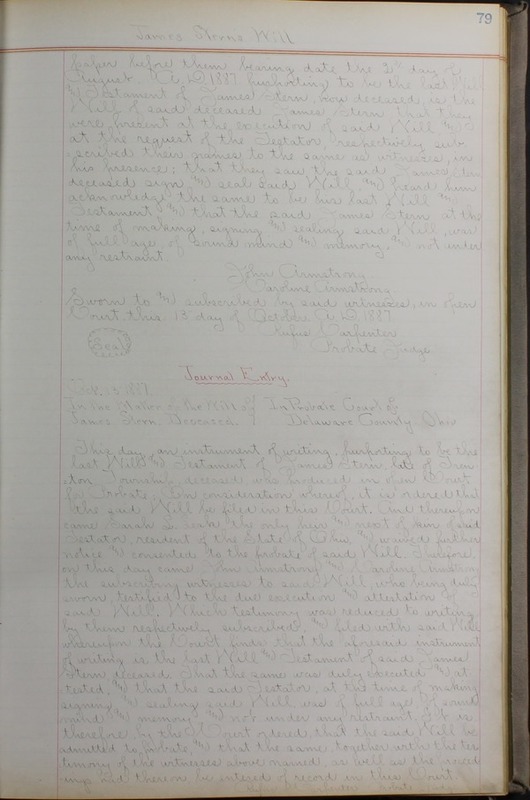 79
James Sterns Will
paper before them bearing date the 31st day of
August, A.D. 1887 purporting to be the last Will
and Testament of James Stern, now deceased, is the
Will of said deceased James Stern that they
were present at the execution of said Will and
at the request of the Testator, respectively sub
scribed their names to the same as witnesses, in
his presence; that they saw the said James Stern
deceased sign and seal said Will, and heard him
acknowledge the same to be his last Will and
Testament, and that the said James Stern at the
time of making, signing and sealing said Will, was
of full age, of sound mind and memory, and not under
any restraint.
John Armstrong
Caroline Armstrong
Sworn to and subscribed by said witnesses, in open
Court this 13 day of October A.D. 1887
Rufus Carpenter
Probate Judge
Seal
Journal Entry.
Oct. 13, 1887.
In the Matter of the Will of } In Probate Court of
James Stern Deceased. } Delaware County Ohio
This day, an instrument of writing, purporting to be the
last Will and Testament of James Stern late of
Township deceased, was produced in open Court
for Probate; On consideration whereof, it is ordered that
the said Will be filed in this Court. And thereupon
came Sarah the only heir and next of kin of said
Testator, resident of the State of Ohio, and waived further
notice and consented to the probate of said Will. Therefore
on this day came John Armstrong and Caroline Armstrong
the subscribing witnesses to said Will, who being duly
sworn, testified to the due execution and attestation of
said Will. Which testimony was reduced to writing
by them respectively subscribed, and filed with said Will
whereupon the Court finds that the aforesaid instrument
of writing is the last Will and Testament of said James
Stern deceased. That the same was duly executed and at
tested, and that the said Testator, at the time of making
signing and sealing said Will was of full age, of sound
mind and memory and not under any restraint. It is
therefore, by the Court ordered, that the said Will be
admitted to probate, and that the same, together with the tes
timony of the witnesses above named, as well as the proceed
ings had thereon be entered of record in this Court.